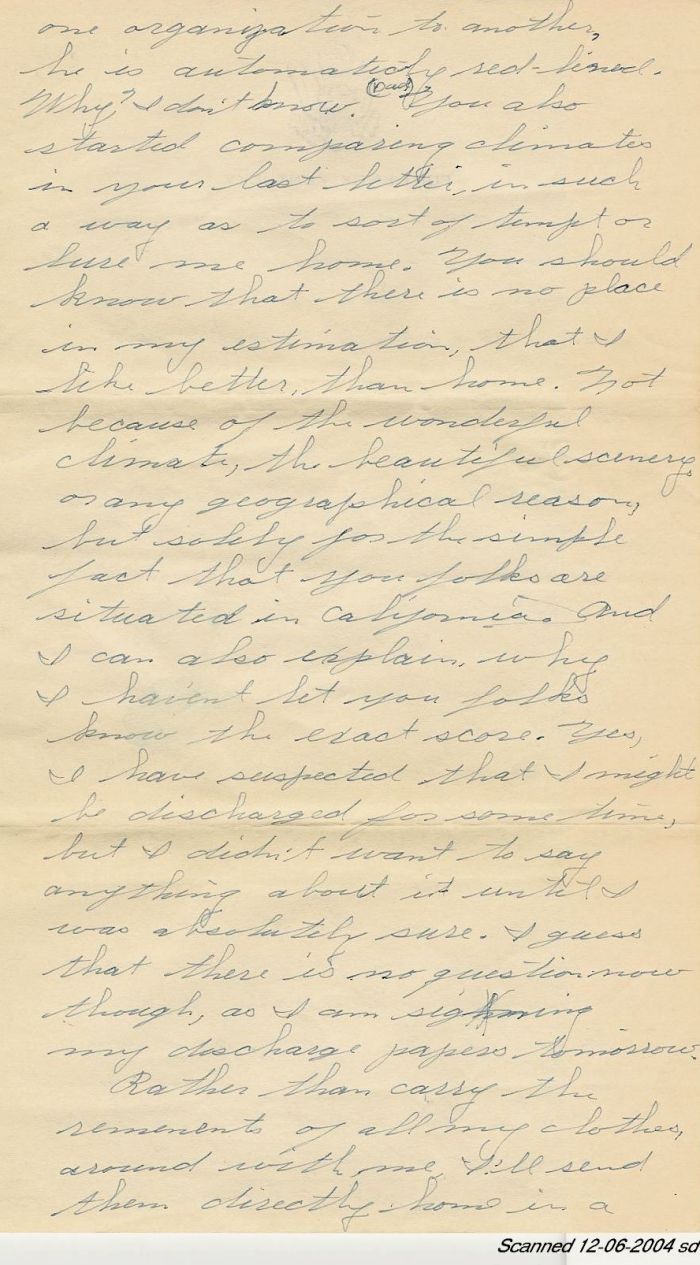 one organization to another,
he is automaticly red-lined.
Why? I don't know. (Dad) You also
started comparing climates
in your last letter, in such
a way as to sort of tempt or
lure me home. You should
know that there is no place
in my estimation, that I
like better, than home. Not
because of the wonderful
climate, the beautiful scenery,
or any geographical reason,
but solely for the simple
fact that you folks are
situated in California. And
I can also explain, why
I haven't let you folks
know the exact score. Yes,
I have suspected that I might
be discharged for some time,
but I didn't want to say
anything about it until I
was absolutely sure. I guess
that there is no question now
though, as I am signing
my discharge papers tomorrow.
Rather than carry the
remenents of all my clothes,
around with me, I'll send
them directly home in a
Scanned 12-06-2004 sd